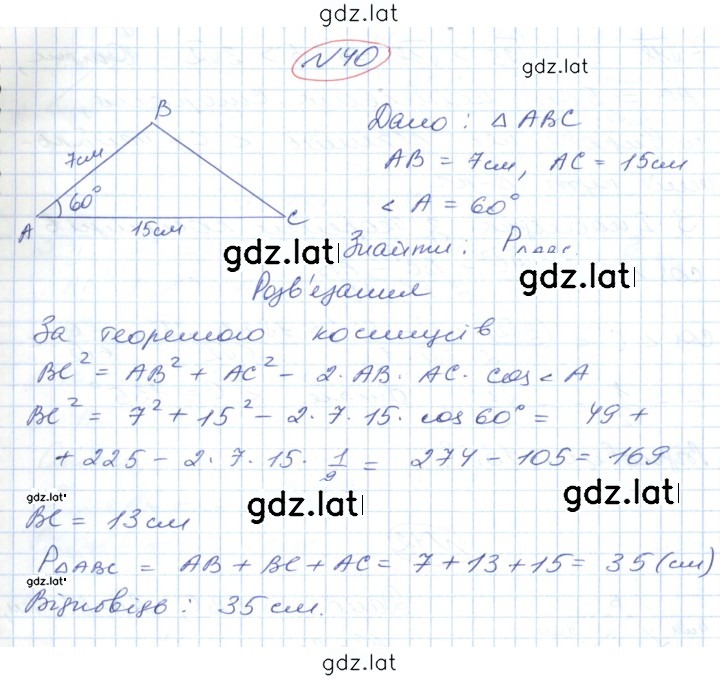 gdz.lat
№40
gdz.lat
B
Дано : △ ABC
7см
AB = 7см, AC = 15см
60°
< A = 60°
A
15см
C
gdz.lat
Знайти : P△ABC
gdz.lat
Розв'язання
За теоремою косинусів
BC² = AB² + AC² - 2· AB· AC· cos < A
BC² = 7² + 15² - 2· 7· 15· cos 60° = 49 +
+ 225 - 2· 7· 15· 1/2 = 274 - 105 = 169
gdz.lat
gdz.lat
gdz.lat
BC = 13 см
P△ABC = AB + BC + AC = 7 + 13 + 15 = 35 (см)
gdz.lat
Відповідь : 35 см.
gdz.lat